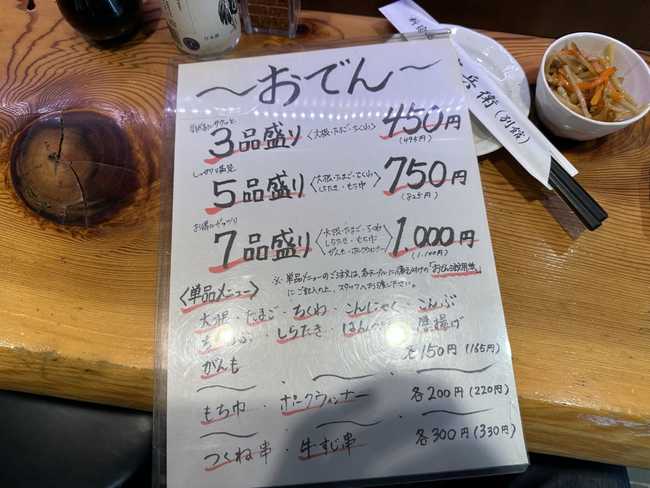 ～おでん～
3品盛り 〈大根・たまご・ちくわ〉 450円
(495円)
しっかり満足
5品盛り 〈大根・たまご・ちくわ
しらたき・もち巾〉 750円
(825円)
お得にガッツリ
7品盛り 〈大根・たまご・ちくわ
しらたき・もち巾
がんも・ポークウィンナー〉 1,000円
(1,100円)
〈単品メニュー〉
※単品メニューのご注文は、各テーブルに備え付けの「おでん注文用紙」
にご記入の上、スタッフへお渡し下さい。
大根・たまご・ちくわ・こんにゃく・こんぶ
しらたき・はんぺん・厚揚げ
がんも 各150円(165円)
もち巾・ポークウィンナー 各200円(220円)
つくね串・牛すじ串 各300円(330円)
兵衛(別館)